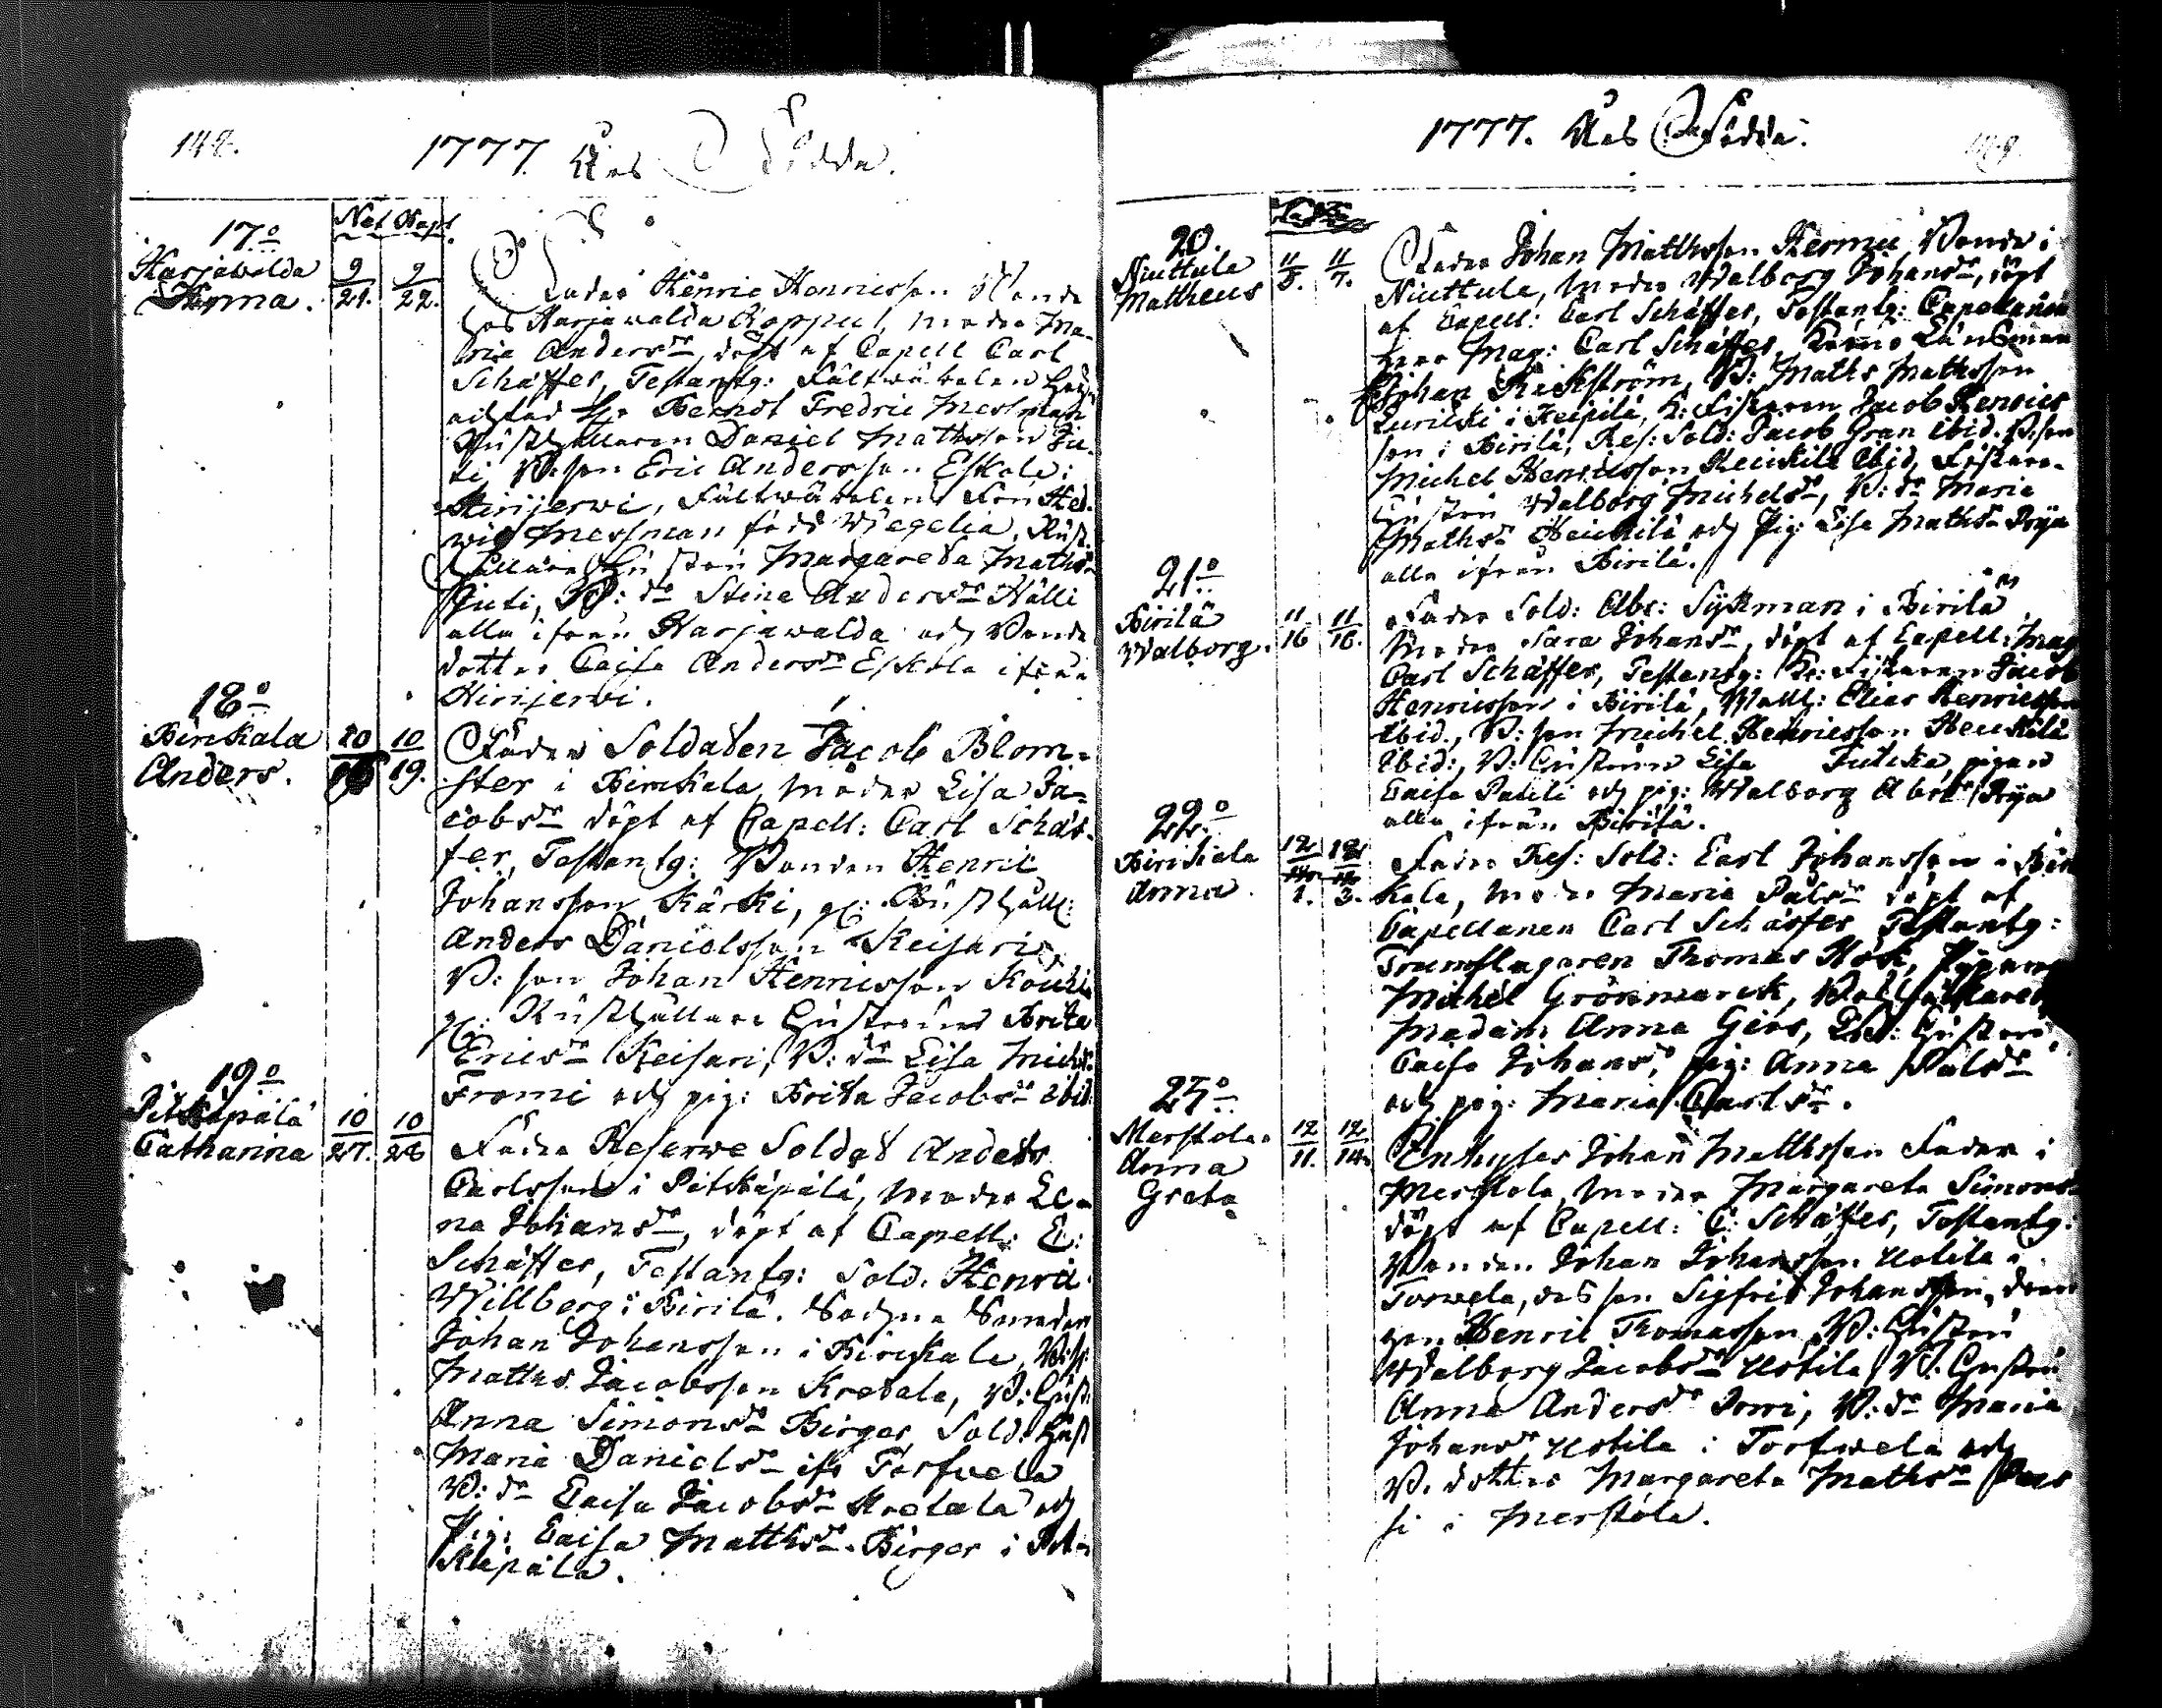 148.
1777. Års Födde.
Nat. Dopt.
17:o
Harjawalda
Anna.
9/21. 9/22.
Fader Henric Henricsson Bonde
hos Harjawalda Koppul, moder Ma-
ria Andersdr, döpt af Capell Carl
Schäffer, Testantg: Fältwäbelen
Bernd Fredric Messman
Rusthållaren Daniel Mathsson Ju-
ti, B:son Eric Andersson Eskola:
Hirijerwi, Fältwäbelens Fru Hed-
wig Messman född Wegelia, Rust-
hållare Hustru Margareta Mathsdr
Juti, B: dr Stina Andersdr Hälli
alla ifrån Harjawalda och Bonde
dotter Caisa Andersdr Eskola ifrån
Hirijerwi.
18:o
Birkkala
Anders.
10 10/19.
Fader Soldaten Jacob Blom-
ster i Birkkala, moder Lisa Ja-
cobsdr döpt af Capell: Carl Schäf-
fer, Testantg: Bonden Henric
Johansson Kärki, Rusthåll:
Anders Danielsson Keisari,
B: son Johan Henricsson
Rusthållare Hustrurne Brita
Ericsdr Keisari, B: dr Lisa Michelsdr
Fromi och pig: Brita Jacobsdr ibid.
19:o
Pitkäpälä
Catharina
10/27. 10/28
Fader Reserve Soldat Anders
Carlsson i Pitkäpälä, moder Le-
na Johansdr, döpt af Capell: C:
Schäffer, Testantg: Sold. Henric
Willberg i Birilä. Bonden
Johan Johansson i Birkkala, B:s:
Matths Jacobsson Kretala, B: Hust:
Anna Simonsdr Birger Sold: Hust
Maria Danielsdr ifr Torfwela
B: dr Caisa Jacobsdr Kretala och
Pig: Caisa Matthsdr Birger i Pit-
käpälä.
1777. Års Födde.
149.
20.
Niuttula
Mattheus
11/5. 11/7.
Fader Johan Matthsson Kermu, Bonde i
Niuttula, moder Walborg Johansdr, döpt
af Capell: Carl Schäffer, Testantg: Capellanen
Herr Mag: Carl Schäffer, Länsman
Johan Rickström, B: Maths Mathsson
i Heikilä, K: Fiskaren Jacob Henrics
son i Birilä, Res: Sold: Jacob Gran ibid. B:son
Michel Henricsson Heickilä ibid, Fiskare-
Hustru Walborg Michelsdr, B: dr Maria
Mathsdr Heickilä och Pig: Lisa Mathsdr Pöyn
alla ifrån Birilä.
21:o
Birilä
Walborg.
11/16 11/16.
Fader Sold: Abr: Syckman i Birilä,
Moder Sara Johansdr, döpt af Capell: Mag
Carl Schäffer, Testantg: Kr: Fiskaren Jacob
Henricsson i Birilä, Elias Henricsson
ibid., B: son Michel Henricsson Heickilä
ibid:, B: Hustrun Lisa Juticka, pigan
Caisa Pauli och pig: Walborg Pöyn
alla ifrån Birilä.
22:o
Birikkala
Anna.
12/1. 12/3.
Fader Res: Sold: Carl Johansson i Birk
kala, moder Maria Pålsdr döpt af
Capellanen Carl Schäffer, Testantg:
Trumslagaren Thomas Hök, Pyparen
Michel Grönmarck,
Madam Anna Giers, Hustru
Caisa Johansd, pig: Anna Pålsdr
och pig: Maria Carlsdr.
Merstola
Anna
Greta
12/11. 12/14.
Enhyses Johan Matthsson Fader i
Merstola, moder Margareta Simonsdr
döpt af Capell: C: Schäffer, Testantg:
Bonden Johan Johansson Uotila i
Torwela, des son Sigfrid Johansson, dren
gen Henric Thomasson, B: Hustru
Walborg Jacobsdr Uotila, B: Hustru
Anna Andersdr, B: dr Maria
Johansdr Uotila i Torfwela och
B. dotter Margareta Mathsdr Pas
si i Merstola.